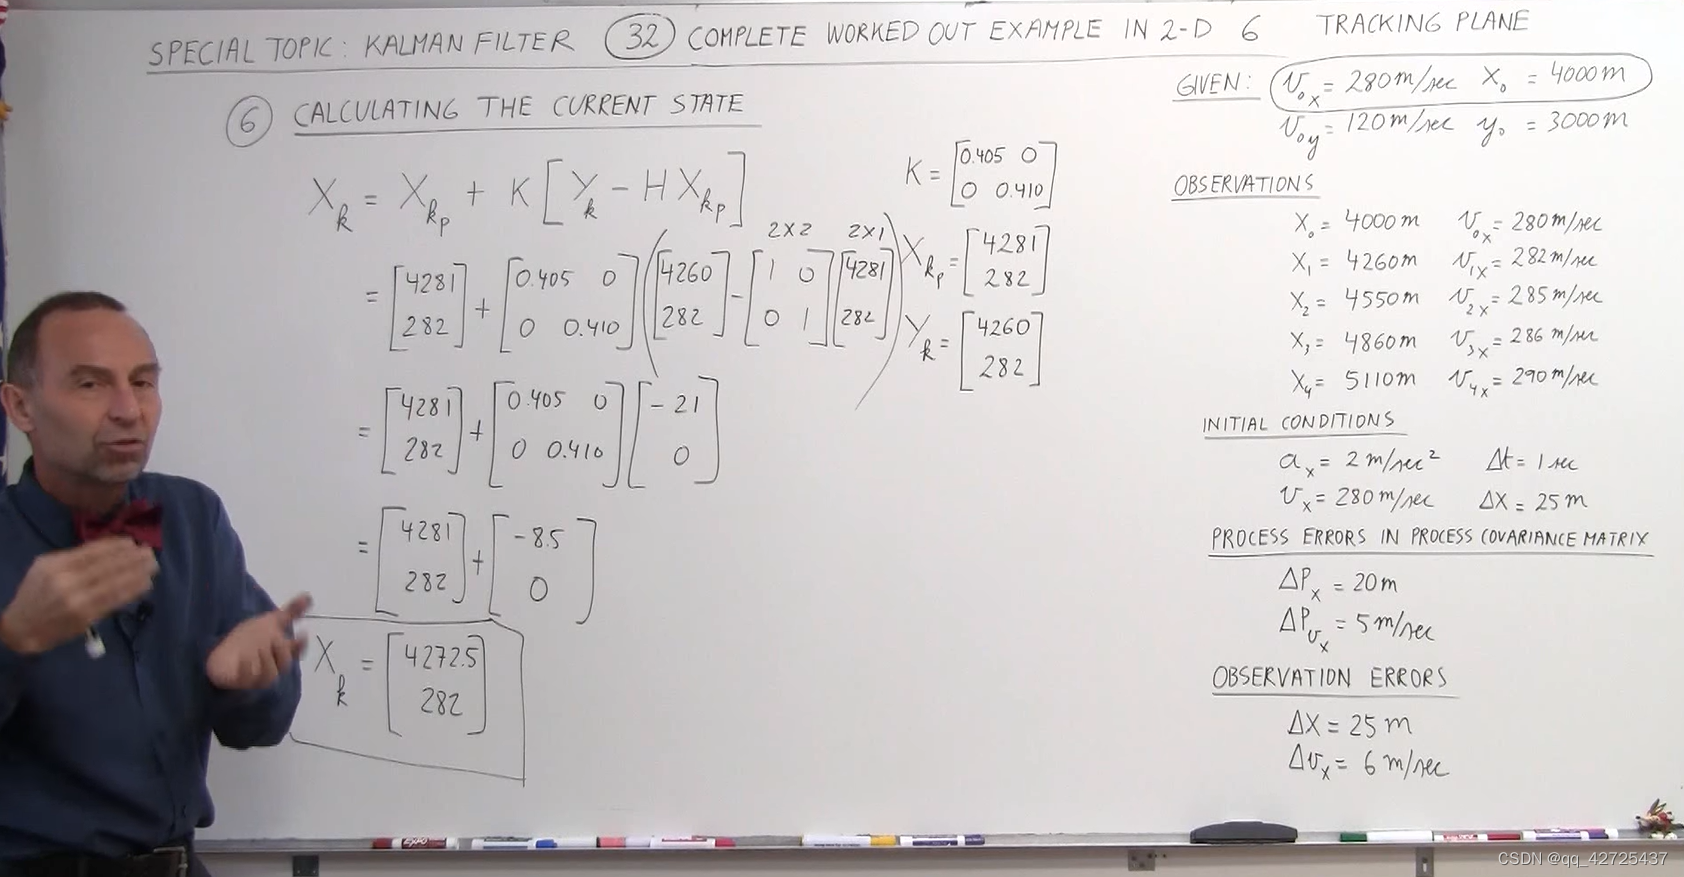 SPECIAL TOPIC: KALMAN FILTER (32) COMPLETE WORKED OUT EXAMPLE IN 2-D 6 TRACKING PLANE
(6) CALCULATING THE CURRENT STATE
X_k = X_kp + K [ Y_k - H X_kp ]
2x2 2x1
= [4281 282] + [0.405 0 0 0.410] ( [4260 282] - [1 0 0 1] [4281 282] )
= [4281 282] + [0.405 0 0 0.410] [-21 0]
= [4281 282] + [-8.5 0]
X_k = [4272.5 282]
K = [0.405 0 0 0.410]
X_kp = [4281 282]
Y_k = [4260 282]
GIVEN: v_0x = 280 m/sec X_0 = 4000 m
v_0y = 120 m/sec y_0 = 3000 m
OBSERVATIONS
X_0 = 4000 m v_0x = 280 m/sec
X_1 = 4260 m v_1x = 282 m/sec
X_2 = 4550 m v_2x = 285 m/sec
X_3 = 4860 m v_3x = 286 m/sec
X_4 = 5110 m v_4x = 290 m/sec
INITIAL CONDITIONS
a_x = 2 m/sec² Δt = 1 sec
v_x = 280 m/sec ΔX = 25 m
PROCESS ERRORS IN PROCESS COVARIANCE MATRIX
ΔP_x = 20 m
ΔP_vx = 5 m/sec
OBSERVATION ERRORS
ΔX = 25 m
Δv_x = 6 m/sec
EXPO
CSDN @qq_42725437